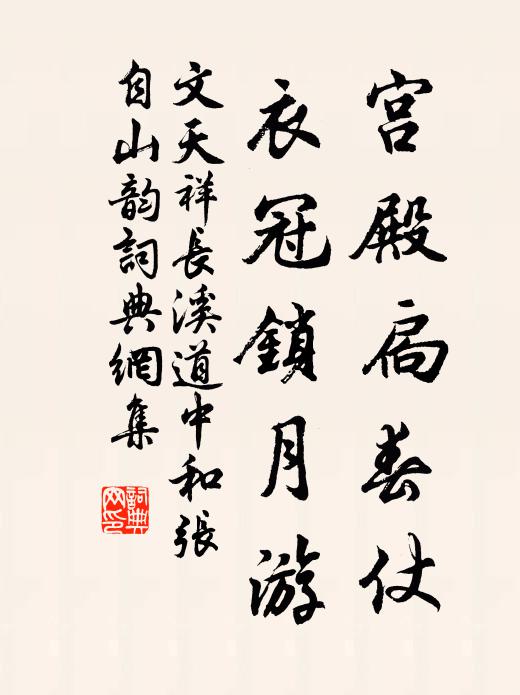 宫殿扃春仗
衣冠鎖月游
文天祥長溪道中和張
自山韵詞典網集
詞典网印